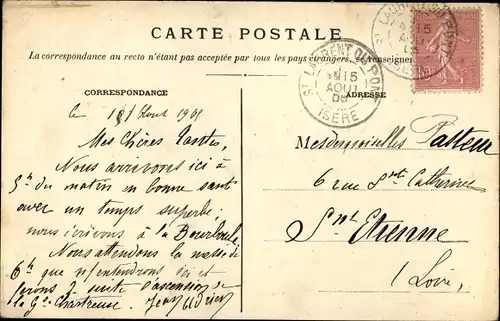 CARTE POSTALE
La correspondance au recto n'étant pas acceptée par tous les pays étrangers, se renseigner
CORRESPONDANCE
ADRESSE
ST LAURENT DU PONT
15
AOUT
ISÈRE
le Août
Mes Chères Tantes,
Nous arrivons ici à
5h du matin en bonne santé
avec un temps superbe;
nous écrivons à la Bourboule
Nous attendons la messe de
6h que ns entendrons ici et
ferons de suite l'ascension de
la Gde Chartreuse.
Mesdemoiselles
6 rue Ste Catherine
St Etienne
(Loire)